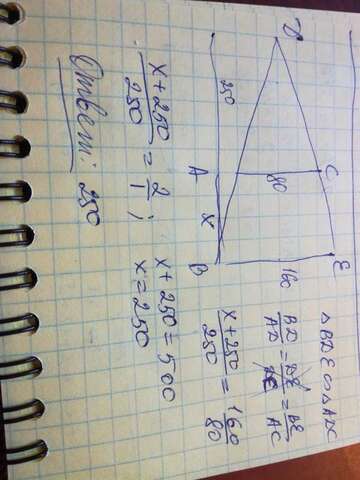 D
250
A
80
C
x
B
160
E
△BDE ∽ △ADC
BD/AD = DE/DC = BE/AC
(x+250)/250 = 160/80
(x+250)/250 = 2/1 ;
x+250=500
x=250
Ответ: 250